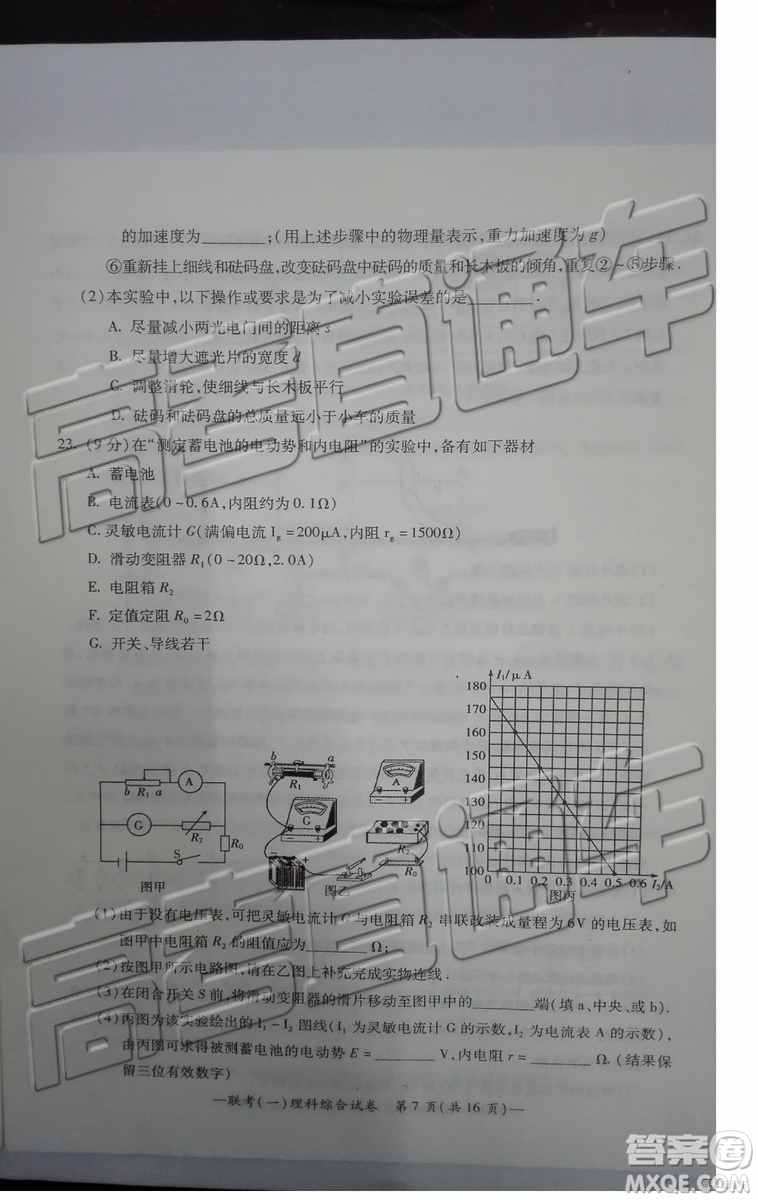 的加速度为________;(用上述步骤中的物理量表示,重力加速度为 g)
⑥重新挂上细线和砝码盘,改变砝码盘中砝码的质量和长木板的倾角,重复②~⑤步骤.
(2)本实验中,以下操作或要求是为了减小实验误差的是________.
A. 尽量减小两光电门间的距离 s
B. 尽量增大遮光片的宽度 d
C. 调整滑轮,使细线与长木板平行
D. 砝码和砝码盘的总质量远小于小车的质量
23. (9 分)在“测定蓄电池的电动势和内电阻”的实验中,备有如下器材
A. 蓄电池
B. 电流表(0~0.6A,内阻约为 0.1Ω)
C. 灵敏电流计 G(满偏电流 Ig=200μA,内阻 rg=1500Ω)
D. 滑动变阻器 R1(0~20Ω,2.0A)
E. 电阻箱 R2
F. 定值定阻 R0=2Ω
G. 开关、导线若干
b R1 a A
G R2
R0
S
图甲
b a
R1
A
G
R2
R0
- +
图乙
I1/μA
180
170
160
150
140
130
120
110
100
0 0.1 0.2 0.3 0.4 0.5 0.6 I2/A
图丙
(1)由于没有电压表,可把灵敏电流计 G 与电阻箱 R2 串联改装成量程为 6V 的电压表,如
图甲中电阻箱 R2 的阻值应为________Ω;
(2)按图甲所示电路图,请在乙图上补充完成实物连线.
(3)在闭合开关 S 前,将滑动变阻器的滑片移动至图甲中的________端(填 a、中央、或 b).
(4)丙图为该实验绘出的 I1-I2 图线(I1 为灵敏电流计 G 的示数,I2 为电流表 A 的示数),
由丙图可求得被测蓄电池的电动势 E=________V,内电阻 r=________Ω.(结果保
留三位有效数字)
—联考(一)理科综合试卷 第 7 页(共 16 页)—
高考直通车
高考直通车
答案圈
MXQE.COM